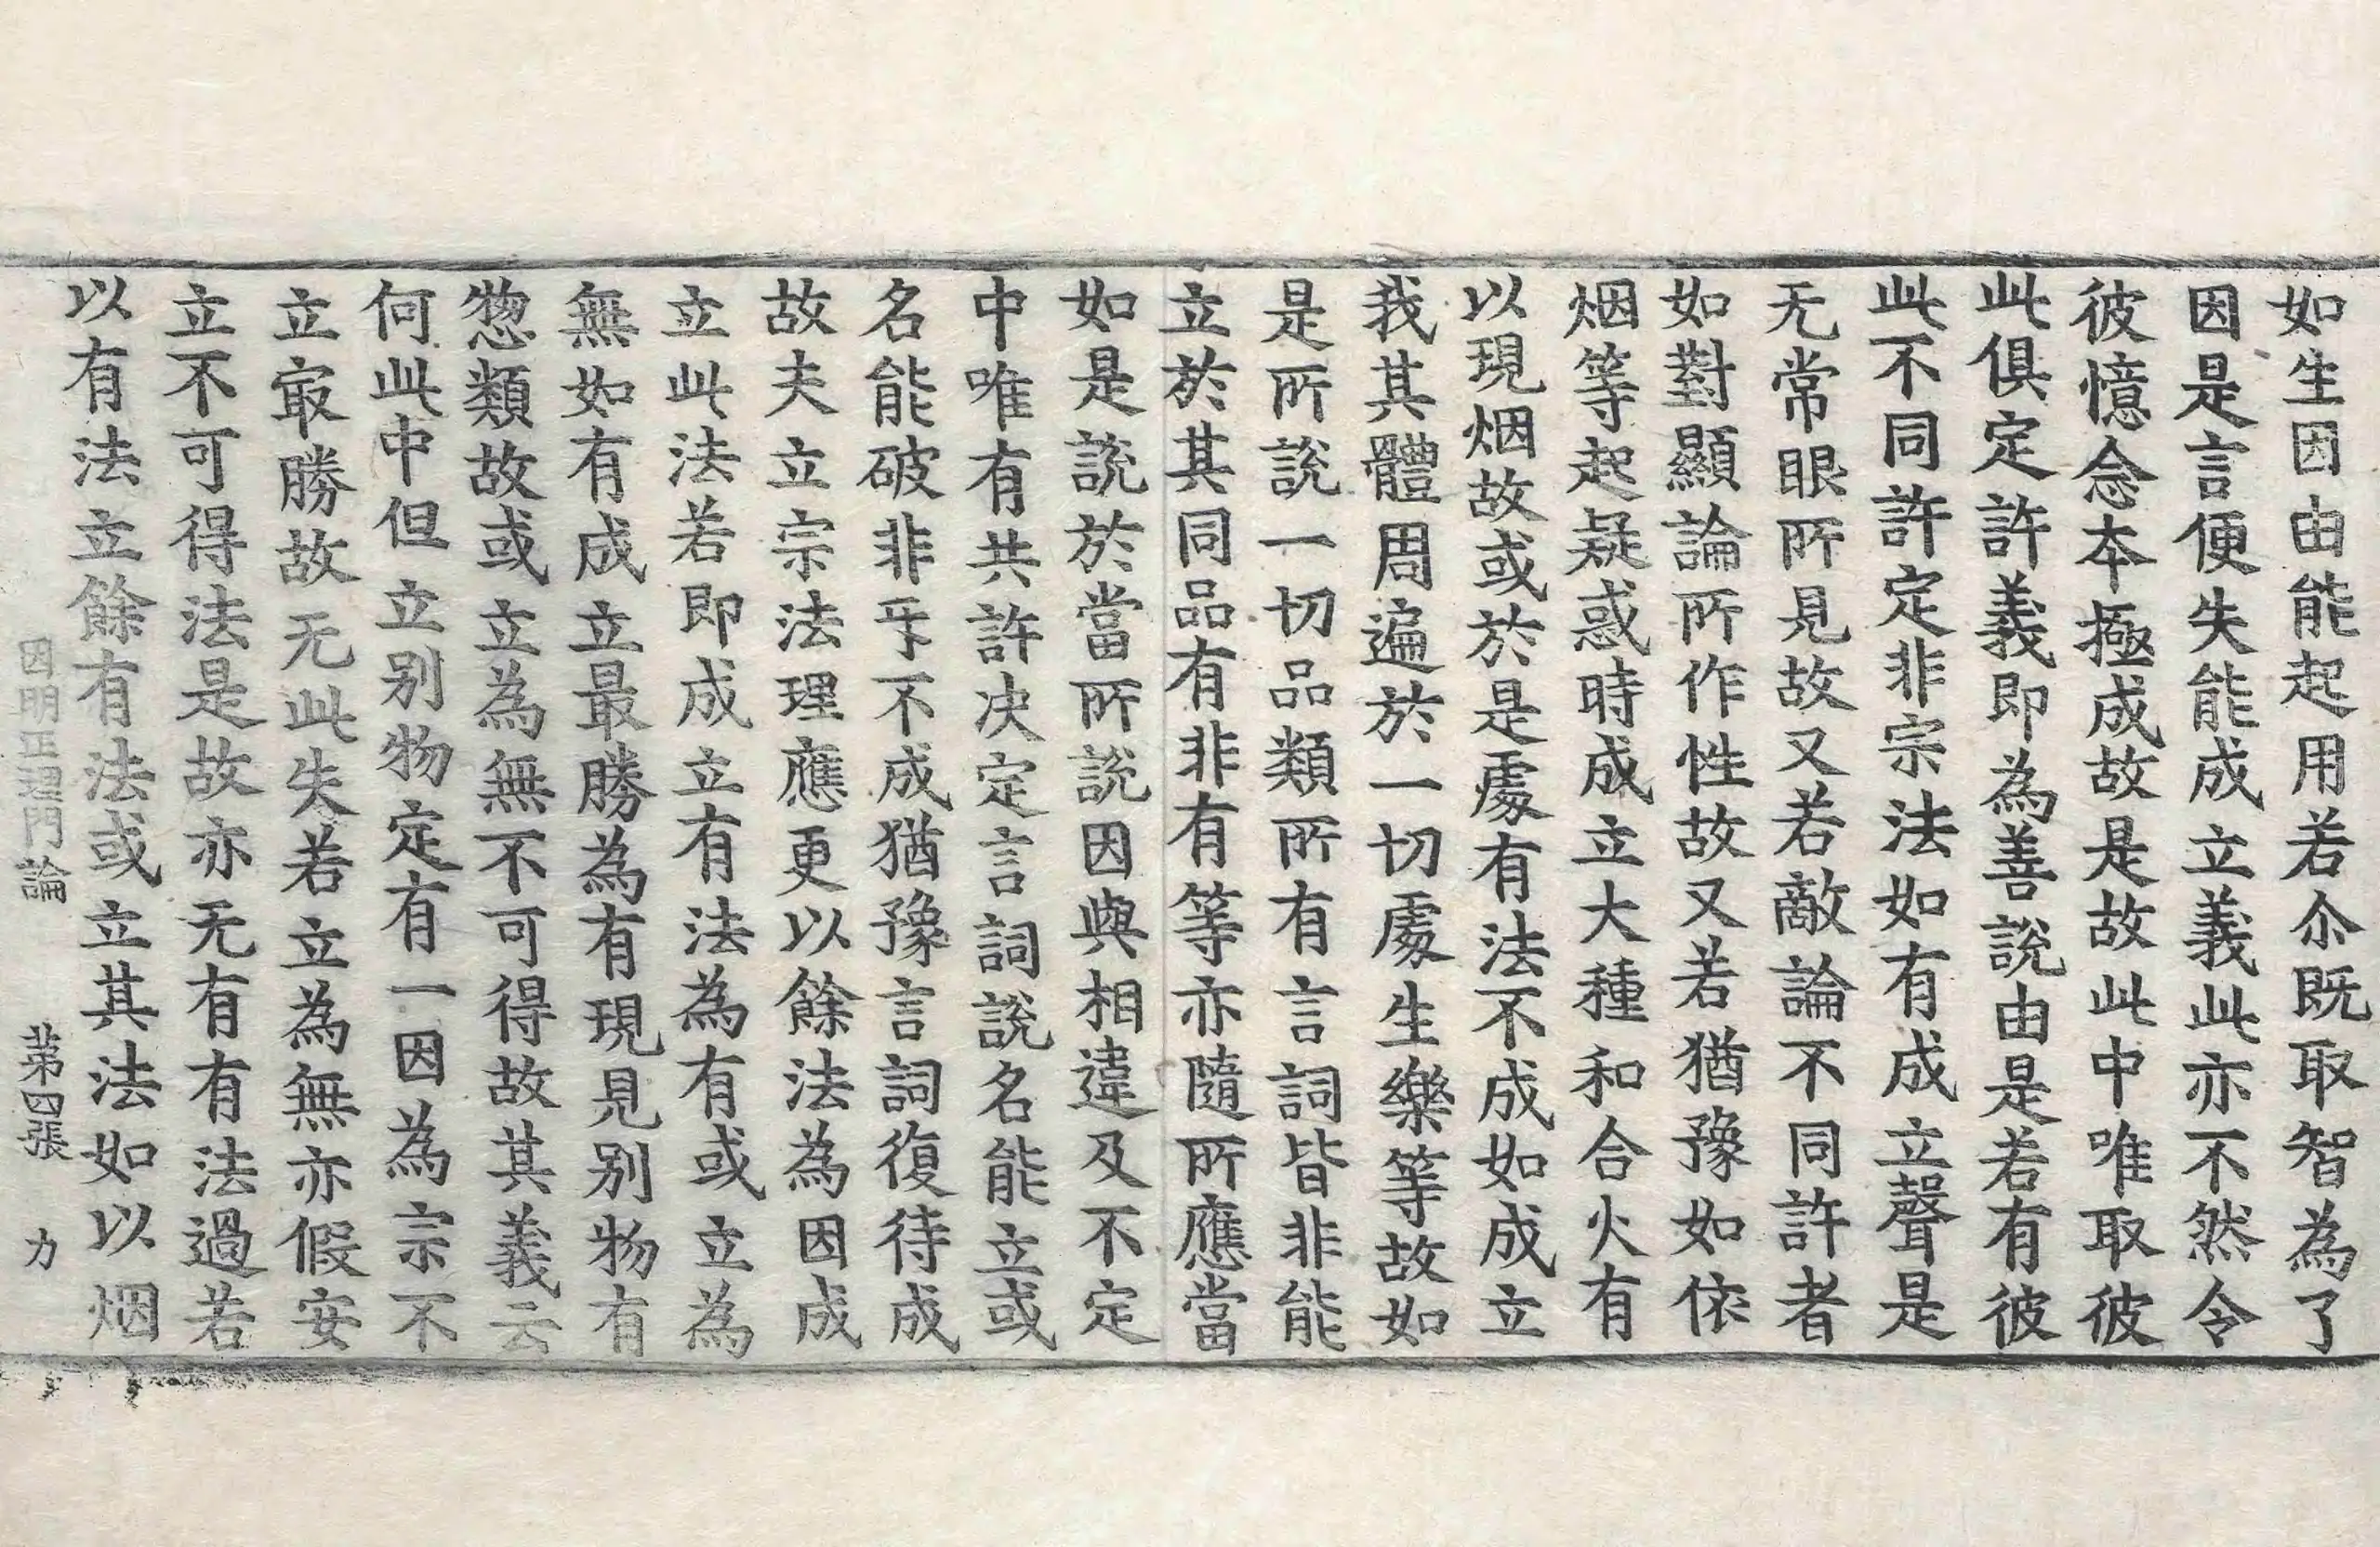 如生因由能起用若尒既取智為了
因是言便失能成立義此亦不然令
彼憶念本極成故是故此中唯取彼
此俱定許義即為善說由是若有彼
此不同許定非宗法如有成立聲是
无常眼所見故又若敵論不同許者
如對顯論所作性故又若猶豫如依
烟等起疑惑時成立大種和合火有
以現烟故或於是處有法不成如成立
我其體周遍於一切處生樂等故如
是所說一切品類所有言詞皆非能
立於其同品有非有等亦隨所應當
如是說於當所說因與相違及不定
中唯有共許决定言詞說名能立或
名能破非乎不成猶豫言詞復待成
故夫立宗法理應更以餘法為因成
立此法若即成立有法為有或立為
無如有成立最勝為有現見别物有
惣類故或立為無不可得故其義云
何此中但立别物定有一因為宗不
立㝡勝故无此失若立為無亦假安
立不可得法是故亦无有有法過若
以有法立餘有法或立其法如以烟
因明正理門論 第四張 力